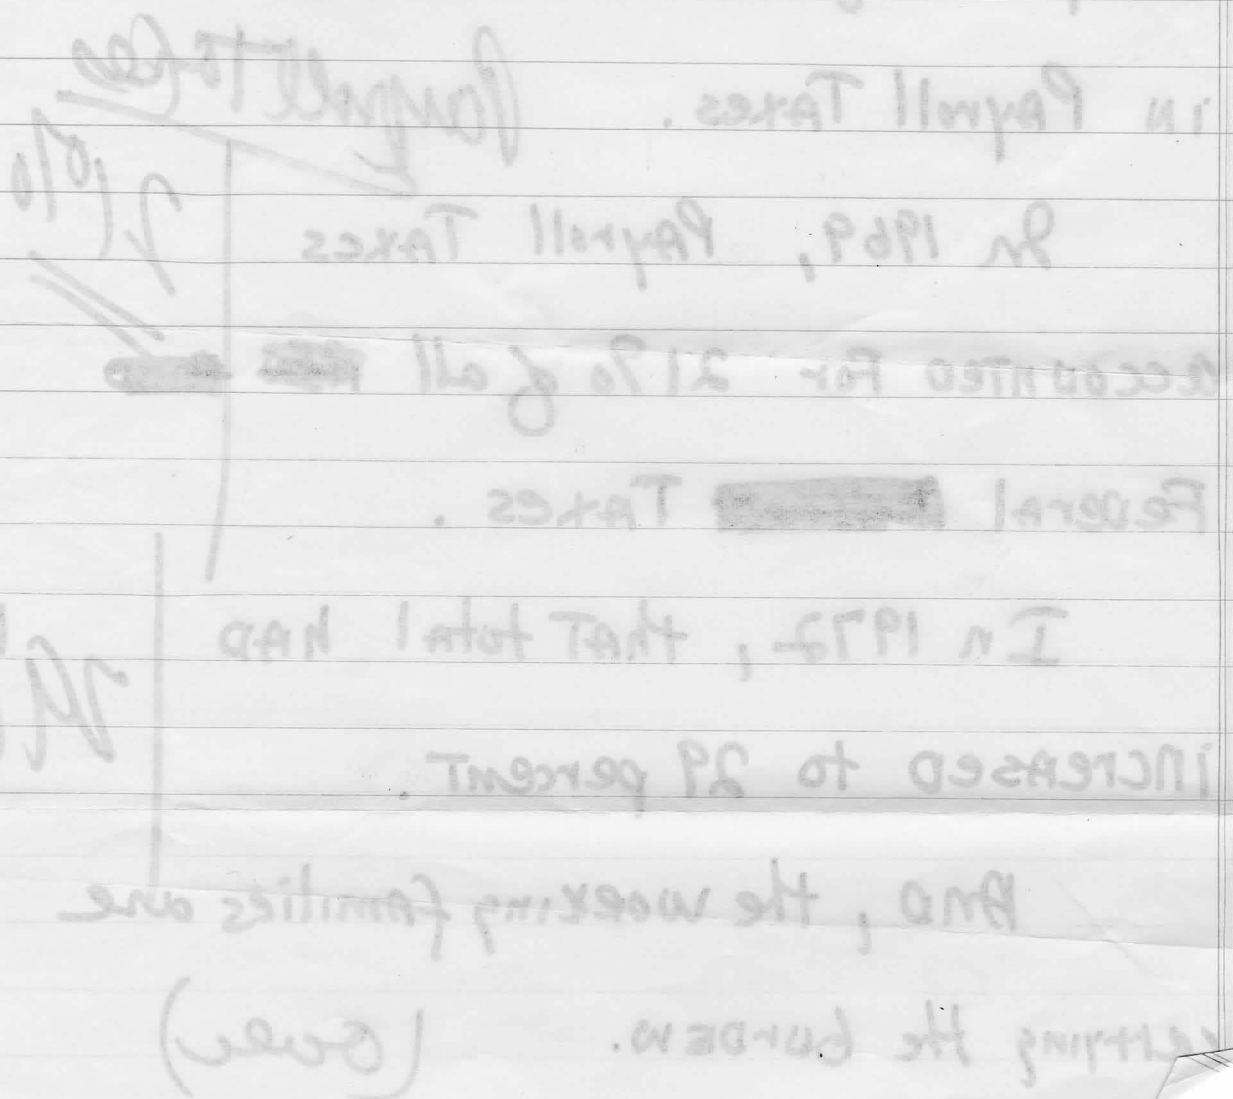 in Payroll Taxes. Payroll Taxes
21%
In 1969, Payroll Taxes
accounted for 21% of all
Federal Taxes.
In 1972, that total had
increased to 29 percent.
And, the working families are
carrying the burden. (over)